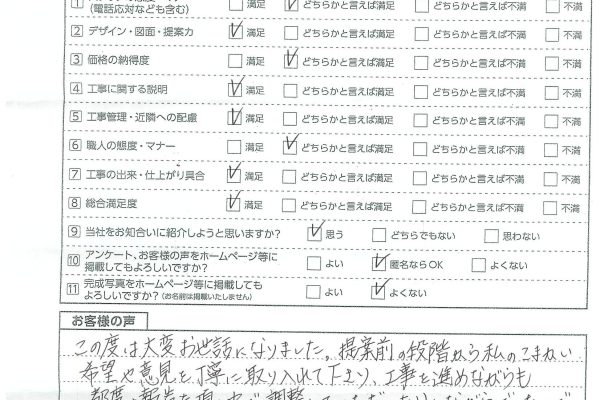 1 (電話応対なども含む) □満足 ☑どちらかと言えば満足 □どちらかと言えば不満 □不満
2 デザイン・図面・提案力 ☑満足 □どちらかと言えば満足 □どちらかと言えば不満 □不満
3 価格の納得度 □満足 ☑どちらかと言えば満足 □どちらかと言えば不満 □不満
4 工事に関する説明 ☑満足 □どちらかと言えば満足 □どちらかと言えば不満 □不満
5 工事管理・近隣への配慮 ☑満足 □どちらかと言えば満足 □どちらかと言えば不満 □不満
6 職人の態度・マナー □満足 ☑どちらかと言えば満足 □どちらかと言えば不満 □不満
7 工事の出来・仕上がり具合 ☑満足 □どちらかと言えば満足 □どちらかと言えば不満 □不満
8 総合満足度 ☑満足 □どちらかと言えば満足 □どちらかと言えば不満 □不満
9 当社をお知合いに紹介しようと思いますか? ☑思う □どちらでもない □思わない
10 アンケート、お客様の声をホームページ等に
掲載してもよろしいですか? □よい ☑匿名ならOK □よくない
11 完成写真をホームページ等に掲載しても
よろしいですか?(お名前は掲載いたしません) □よい ☑よくない
お客様の声
この度は大変お世話になりました。提案前の段階から私のこまかい
希望や意見を丁寧に取り入れて下さり、工事を進めながらも